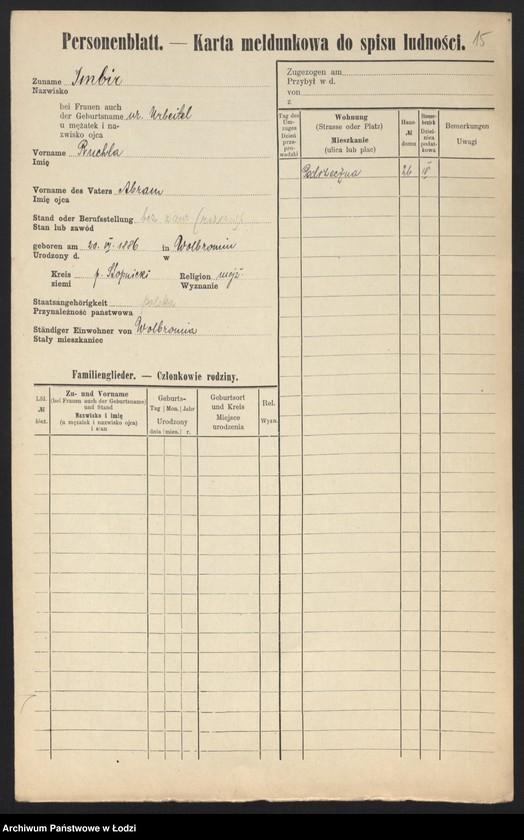 Personenblatt. — Karta meldunkowa do spisu ludności. 15
Zuname Imbir
Nazwisko
bei Frauen auch
der Geburtsname ur. Urbeitel
u mężatek i na-
zwisko ojca
Vorname Ruchla
Imię
Vorname des Vaters Abram
Imię ojca
Stand oder Berufsstellung bez zaw
Stan lub zawód
geboren am 20. VI. 1886 in Wolbromiu
Urodzony d. w
Kreis p. Stopnicki Religion mojż.
ziemi Wyznanie
Staatsangehörigkeit polska
Przynależność państwowa
Ständiger Einwohner von Wolbromia
Stały mieszkaniec
Familienglieder. — Członkowie rodziny.
Lfd.
№
bież.
Zu- und Vorname
(bei Frauen auch der Geburtsname)
und Stand
Nazwisko i imię
(u mężatek i nazwisko ojca)
i stan
Geburts-
Tag | Mon. | Jahr
Urodzony
dnia | mies. | r.
Geburtsort
und Kreis
Miejsce
urodzenia
Rel.
Wyzn.
Zugezogen am
Przybył w d.
von
z
Tag des
Um-
zuges
Dzień
prze-
pro-
wadzki
Wohnung
(Strasse oder Platz)
Mieszkanie
(ulica lub plac)
Haus-
№
domu
Steuer-
bezirk
Dziel-
nica
podat-
kowa
Bemerkungen
Uwagi
Podrzeczna 26 IV
Archiwum Państwowe w Łodzi